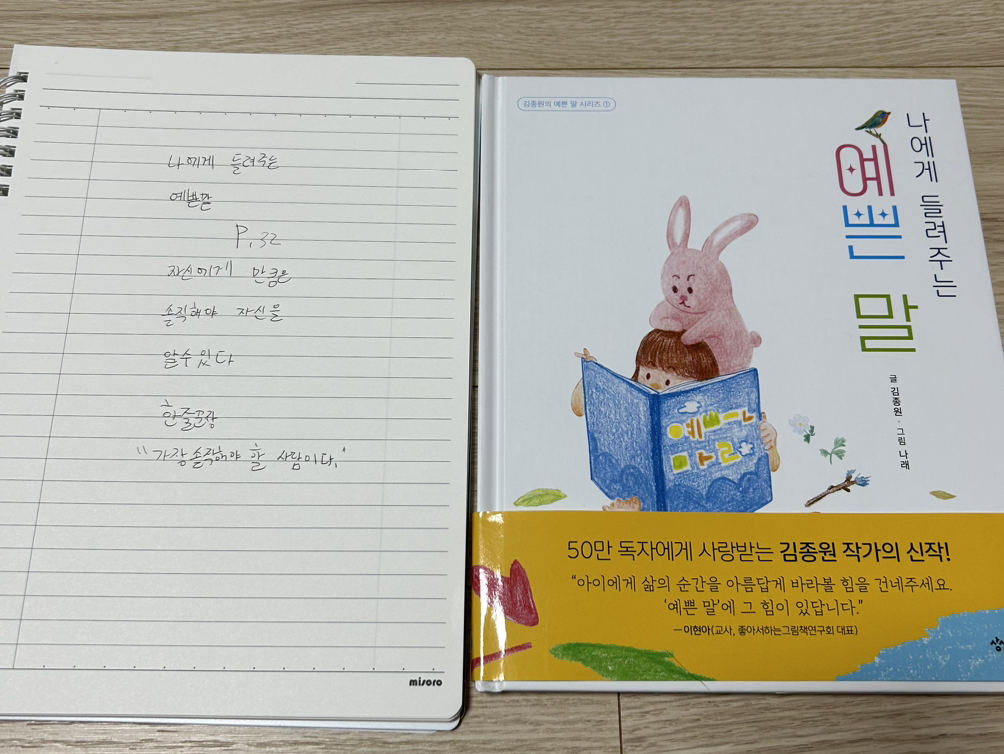 나에게 들려주는
예쁜말
P. 32
자신에게 만큼은
솔직해야 자신을
알수있다
한줄문장
"가장솔직해야 할 사람이다."
misoro
김종원의 예쁜 말 시리즈 ①
나에게 들려주는
예쁜 말
글 김종원 · 그림 나래
예쁜
말
50만 독자에게 사랑받는 김종원 작가의 신작!
"아이에게 삶의 순간을 아름답게 바라볼 힘을 건네주세요.
'예쁜 말'에 그 힘이 있답니다."
—이현아(교사, 좋아서하는그림책연구회 대표)